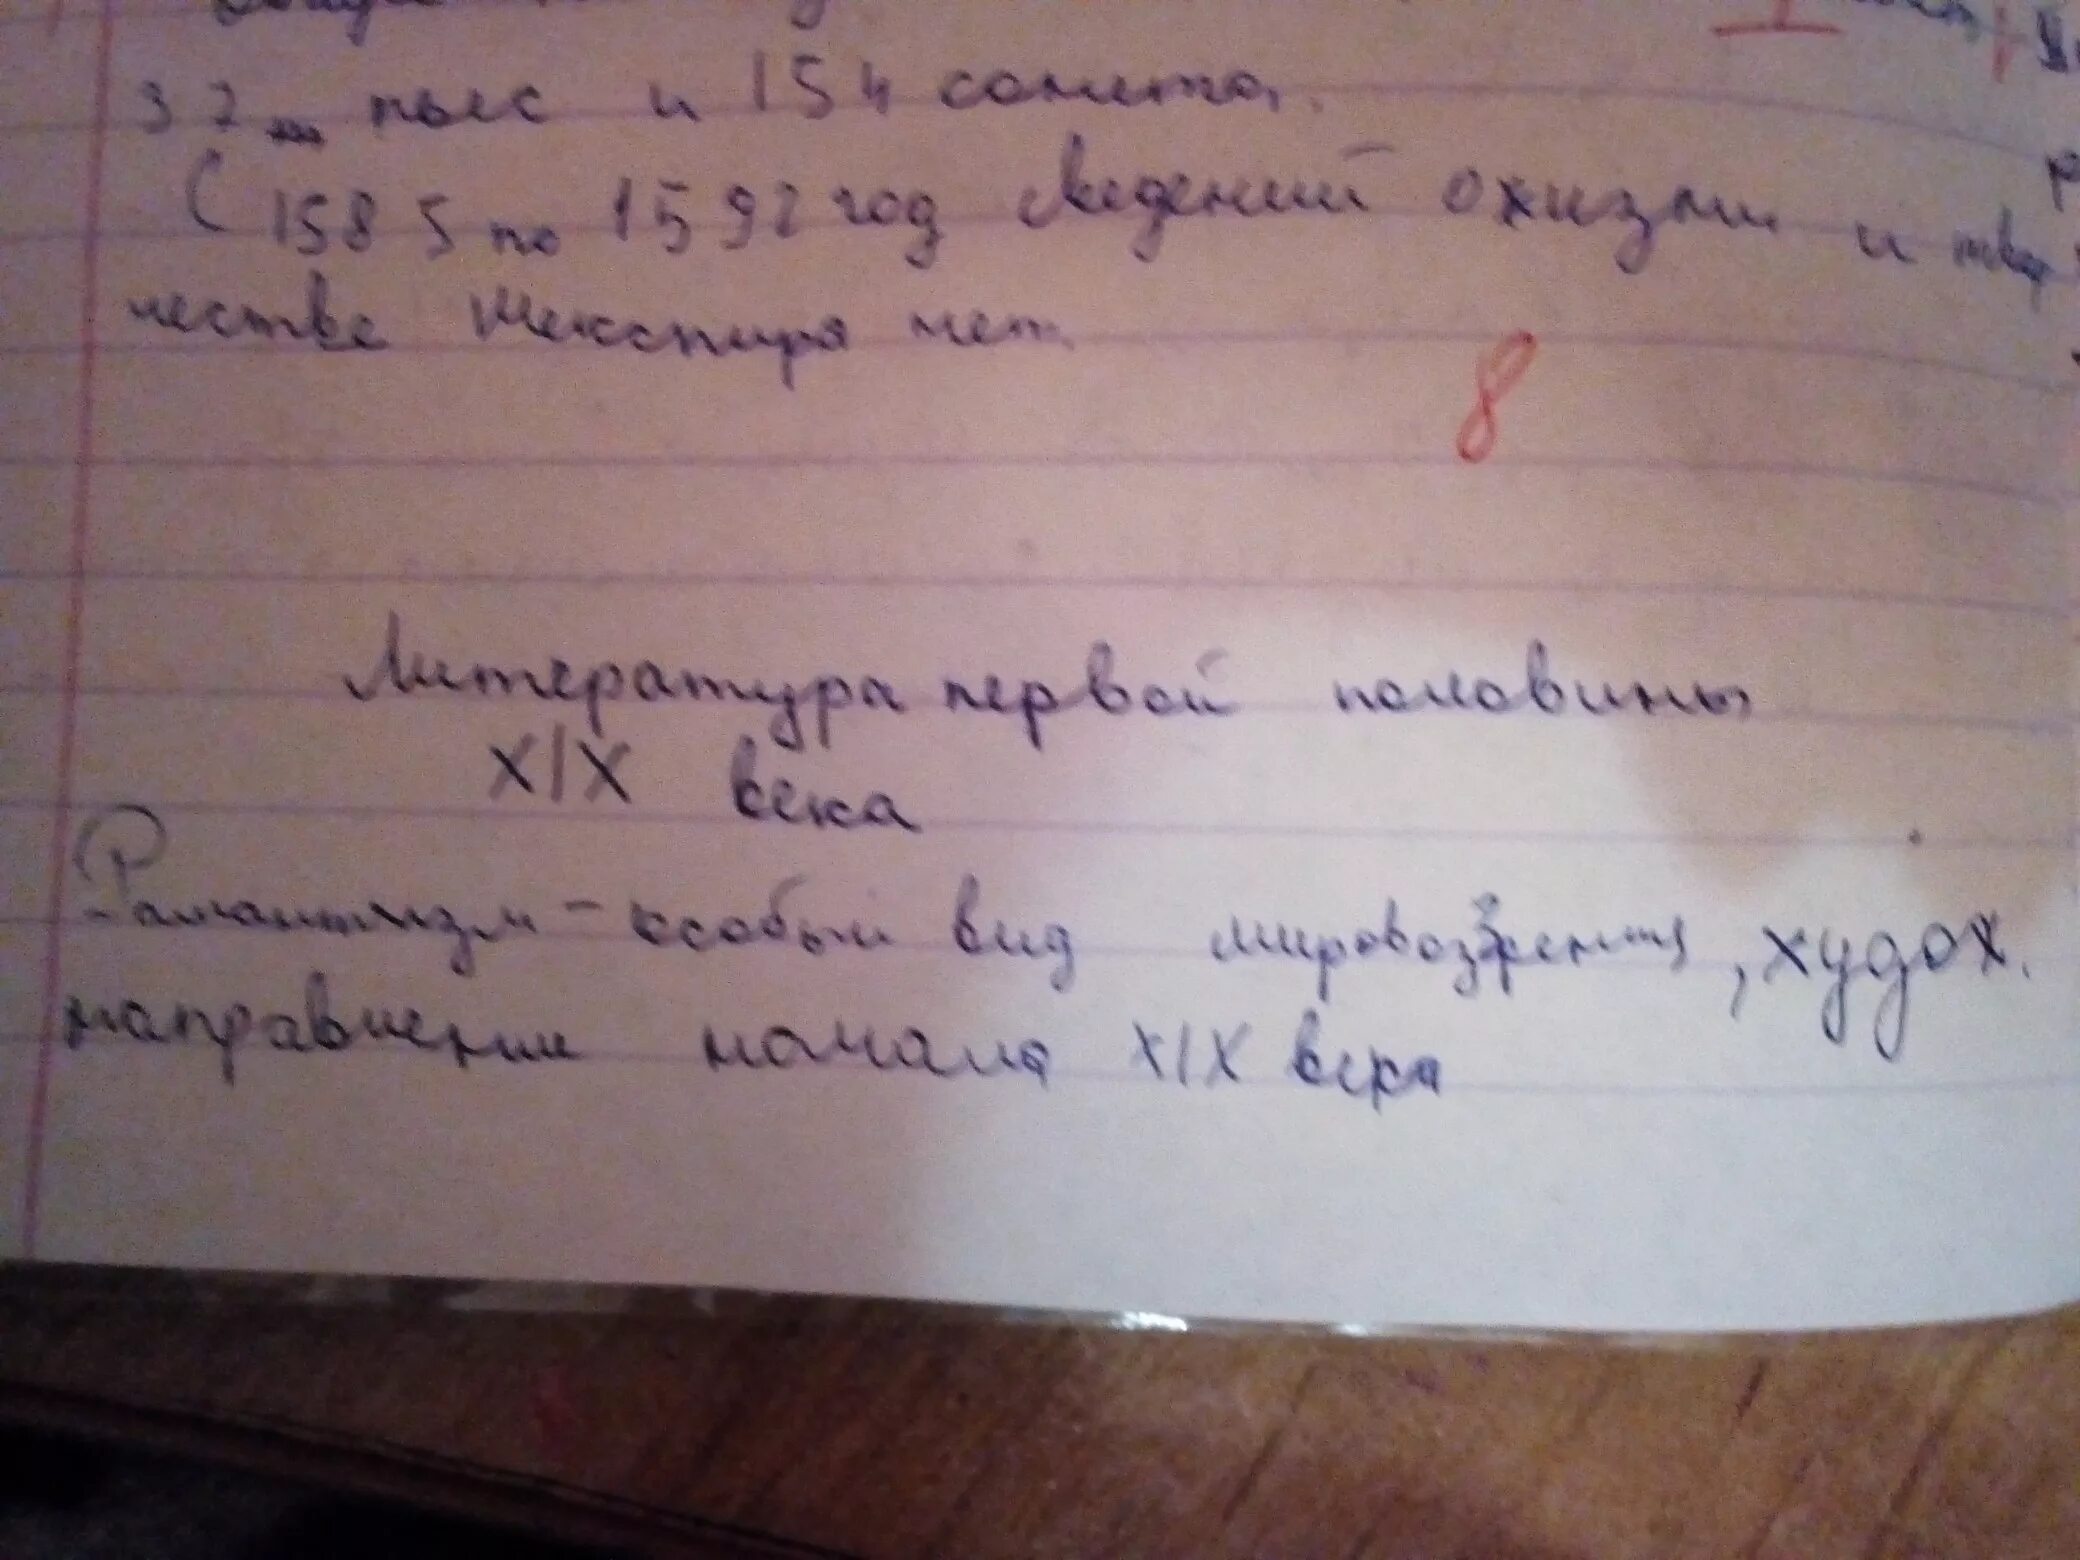 37 пьес и 154 сонета.
С 1585 по 1592 год сведений о жизни и твор
честве Шекспира нет.
8
Литература первой половины
XIX века
Романтизм – особый вид мировоззрения, худож.
направлении начала XIX века